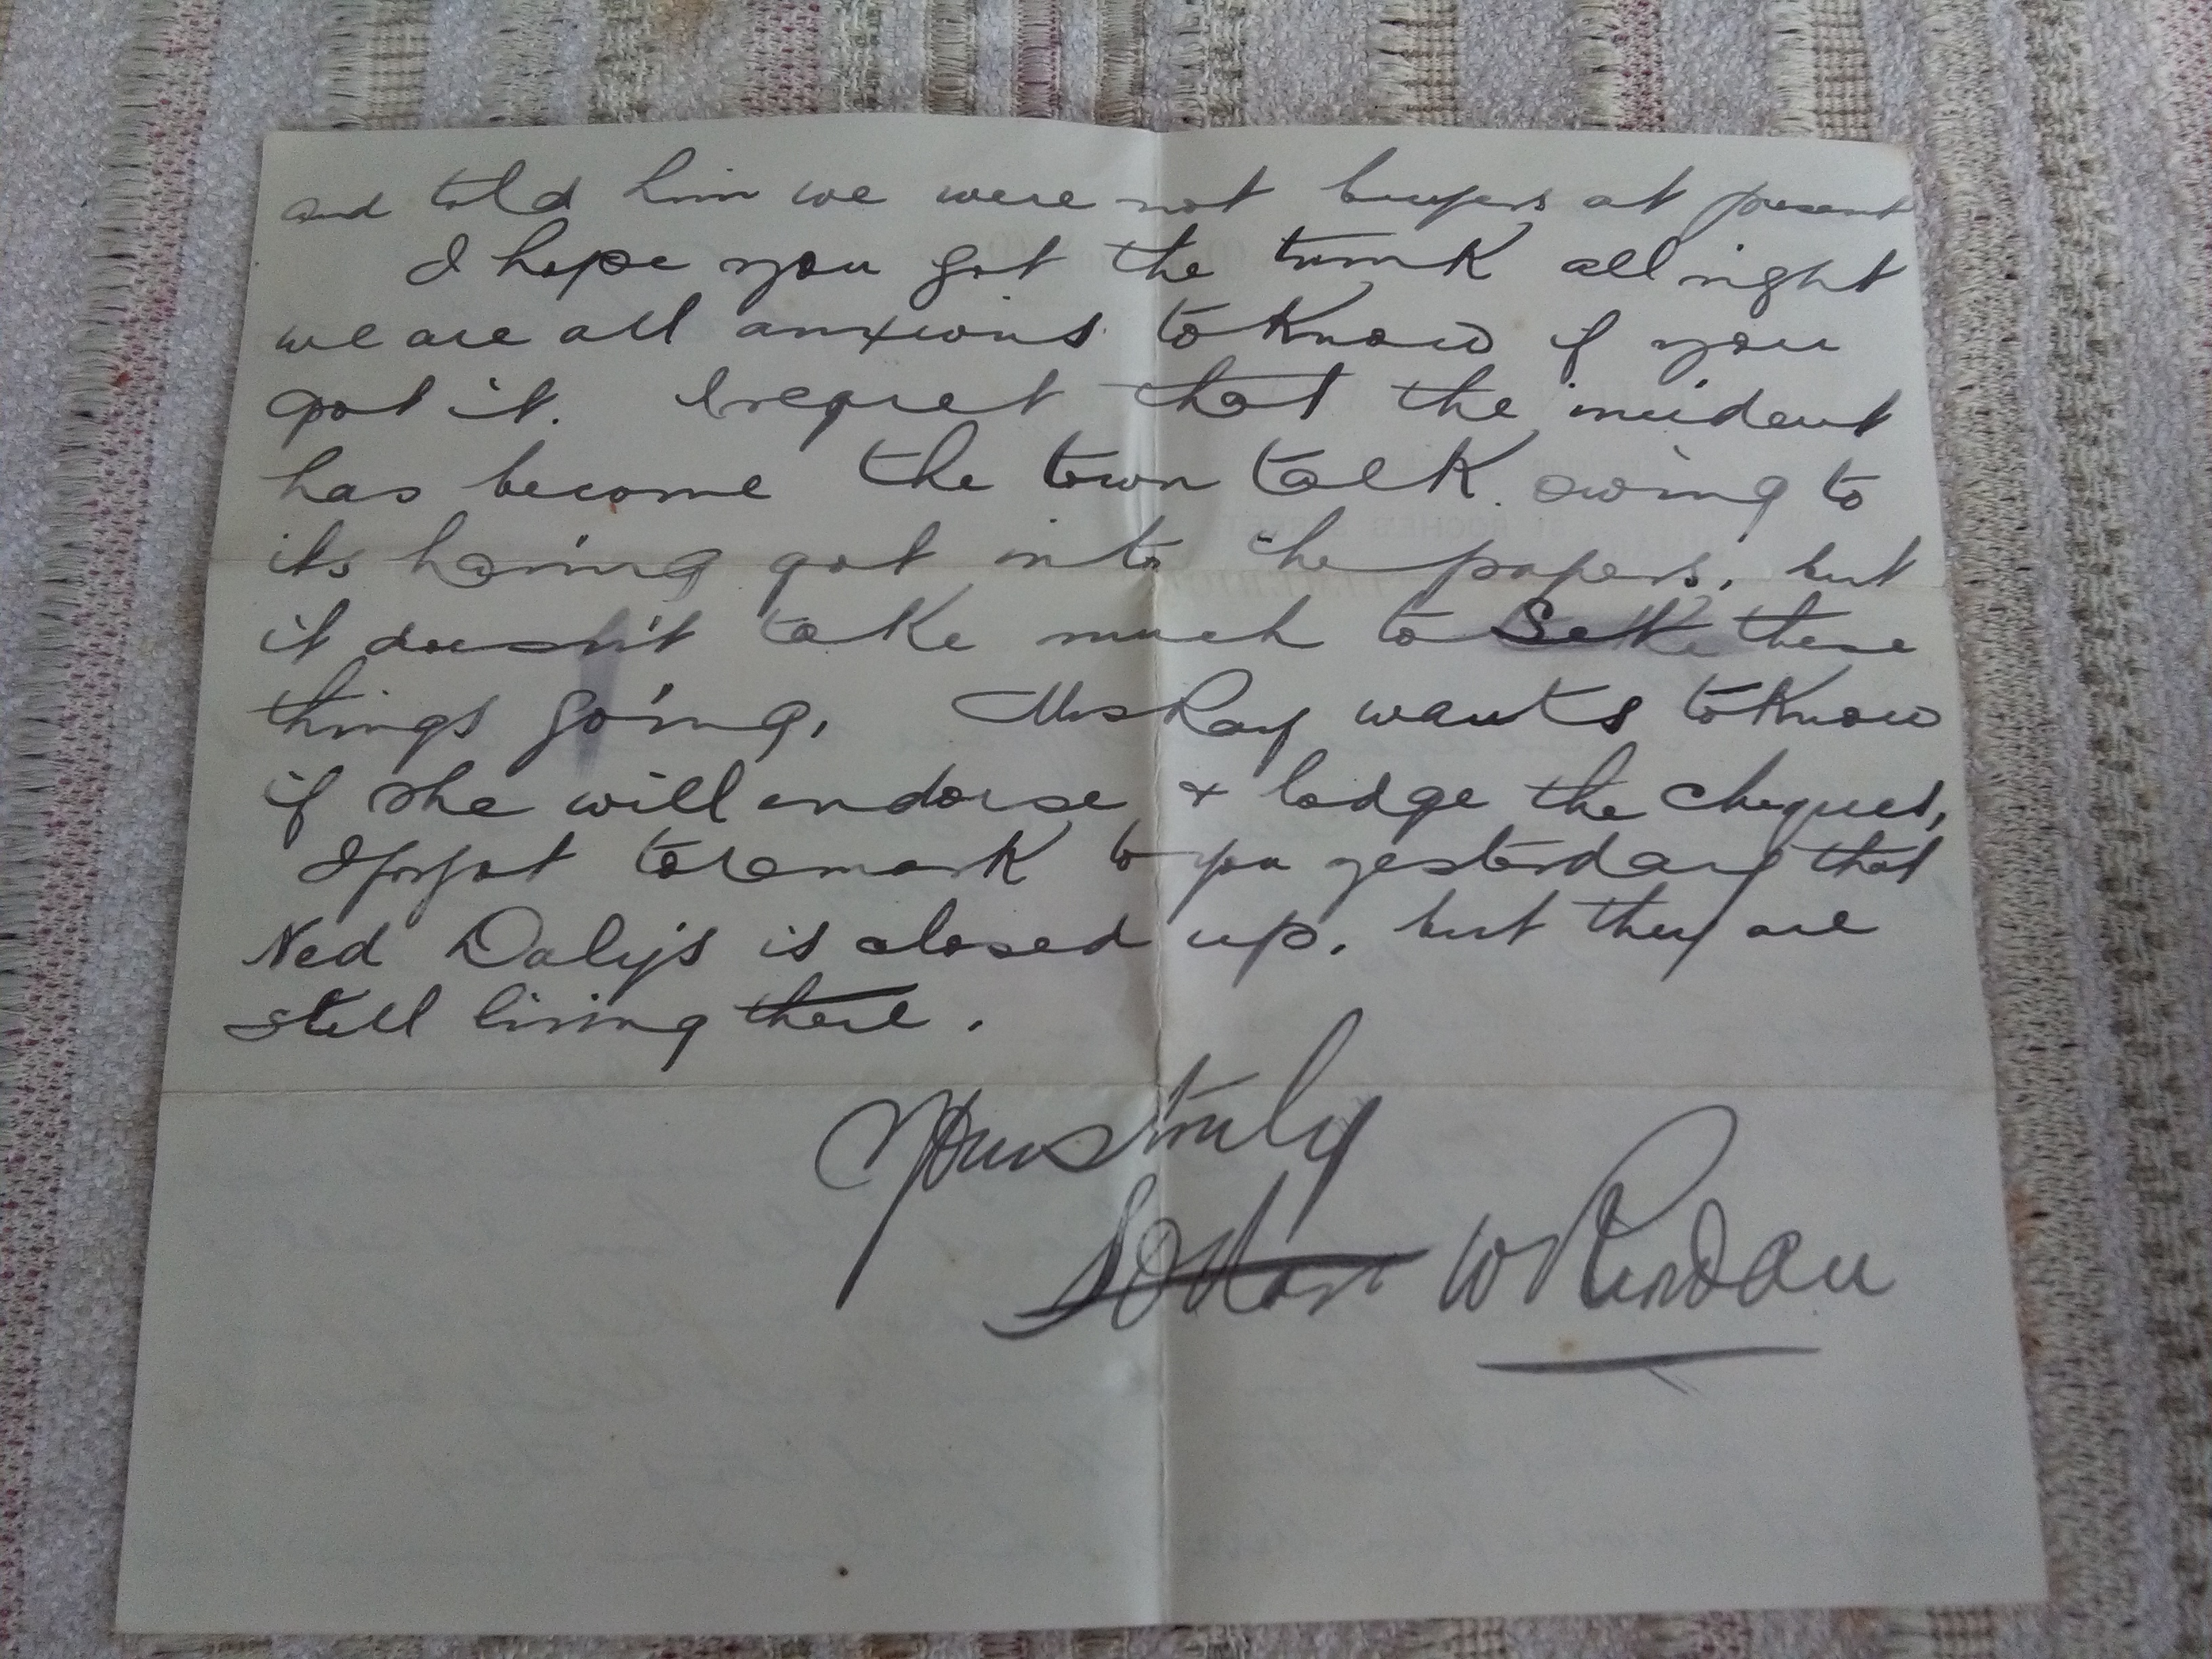 and told him we were not buyers at present
I hope you got the trunk all right
we are all anxious to know if you
got it. I regret that the incident
has become the town talk owing to
its having got into the papers, but
it doesn't take much to set these
things going, Mrs Ray wants to know
if she will endorse & lodge the cheques,
I forgot to remark to you yesterday that
Ned Daly's is closed up, but they are
still living there.
Yours truly
W Riordan